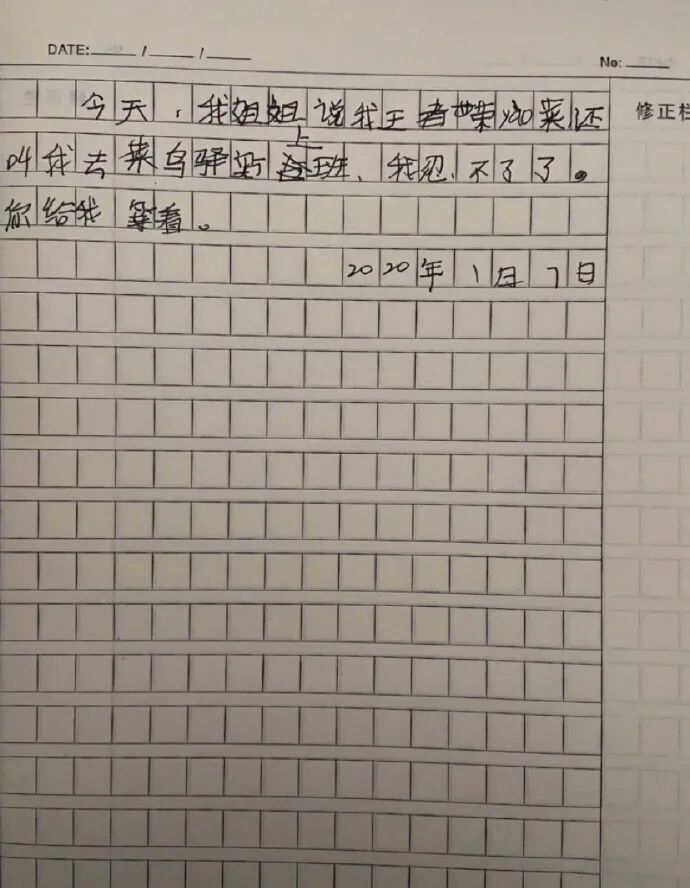 DATE: / /
No:
修正栏
今天，我姐姐说我王者荣 菜还
叫我去菜鸟驿站上班、我忍不了了。
你给我等着。
2020年1月7日